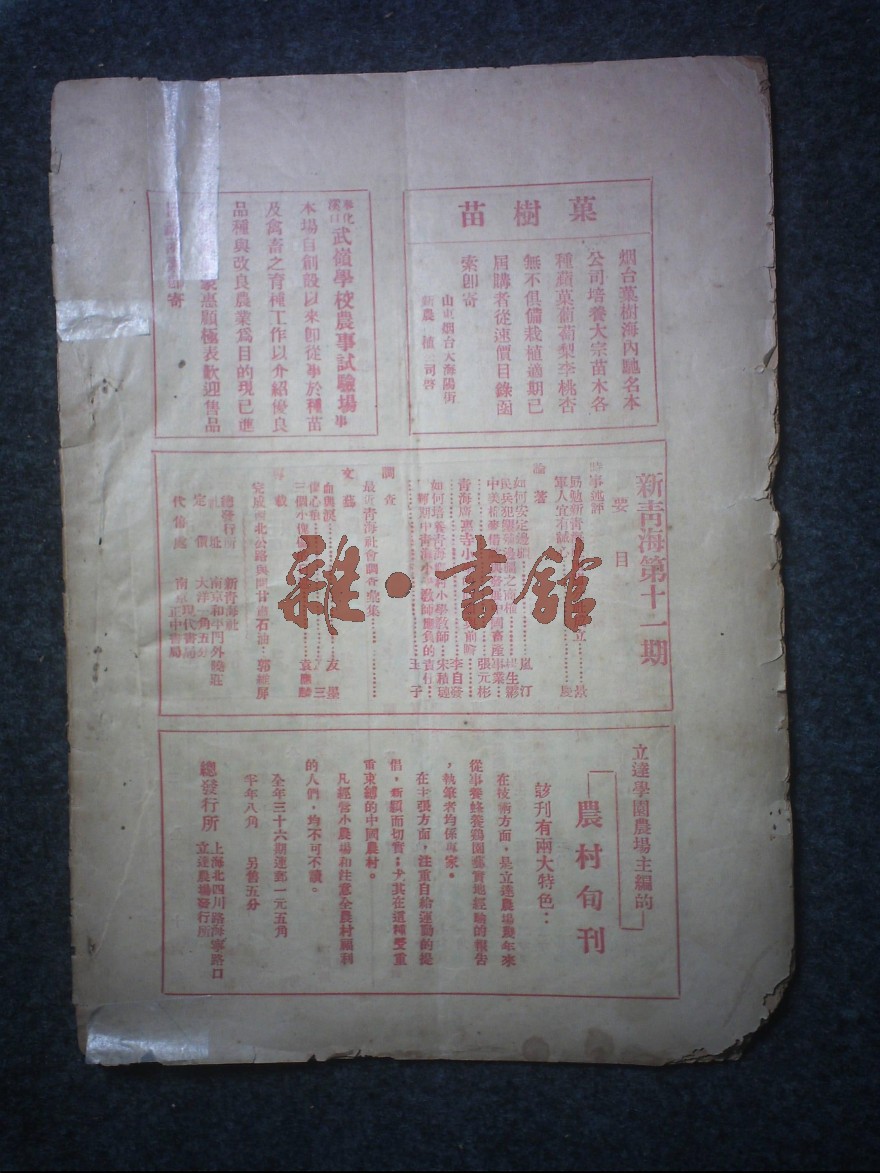 菓樹苗
烟台菓樹海內馳名本
公司培養大宗苗木各
種蘋菓葡萄梨李桃杏
無不俱備栽植適期已
屆購者從速價目錄函
索卽寄
山東烟台大海陽街
奉化
溪口
武嶺學校農事試驗場
本場自創設以來卽從事於種苗
及禽畜之育種工作以介紹優良
品種與改良農業爲目的現已進
惠顧極表歡迎售品
寄
新青海第十一期
要目
時事述評
論著
如何安定邊
張元彬
青海廣惠寺小
李自發
如何培養青海鄉村小學教師
調查
最近青海社會調查彙集
文藝
友墨
三個小傀儡
袁應麟
專載
完成西北公路與開甘肅石油
總發行所 新青海社
社址 南京和平門外曉莊
定價 大洋一角五分
代售處 南京現代書局
南京正中書局
立達學園農場主編的
農村旬刊
該刊有兩大特色：
在技術方面，是立達農場農年來
從事養蜂養鷄園藝實地經驗的報告
，執筆者均係專家。
在主張方面，注重自給運動的提
倡，新穎而切實；尤其在這種受重
重束縛的中國農村。
凡經營小農場和注意全農村福利
的人們，均不可不讀。
全年三十六期連郵一元五角
半年八角 另售五分
總發行所 上海北四川路海寧路口
立達農場發行所
雜·書館